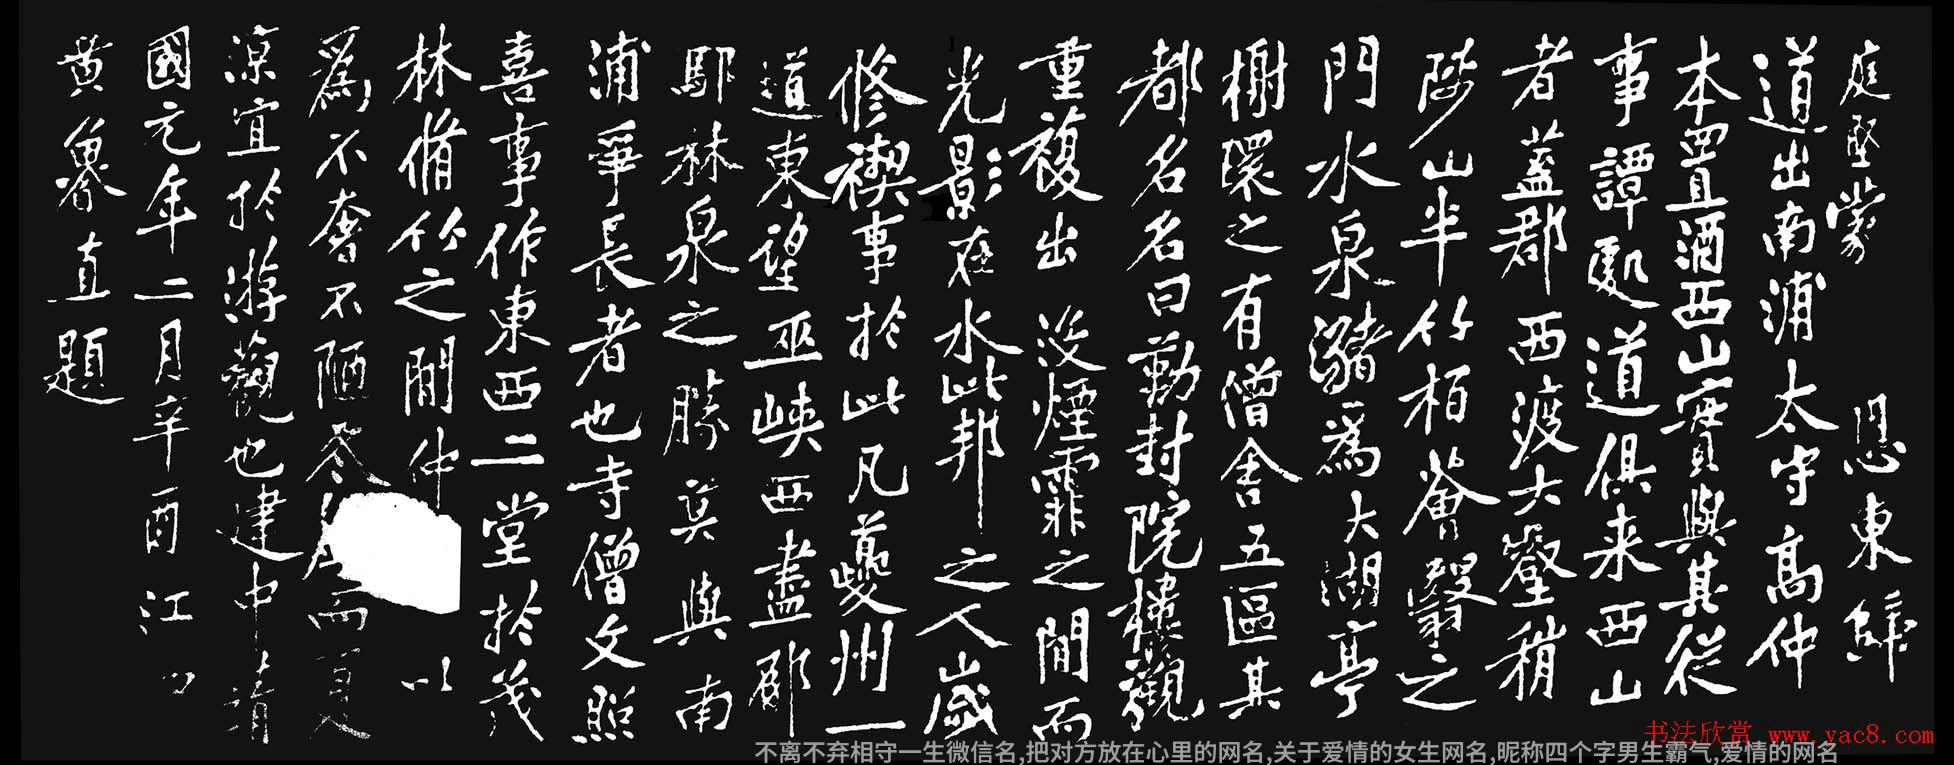 庭堅蒙恩東歸
道出南浦太守高仲
本置酒西山實與其從
事譚處道俱来西山
者蓋郡西渡大壑稍
陟山半竹栢薈翳之
門水泉瀦為大湖亭
榭環之有僧舍五區其
都名名曰勤封院樓觀
重複出沒煙霏之間而
光影在水此邦之人歲
修禊事於此凡夔州一
道東望巫峽西盡
林泉之勝莫與南
浦爭長者也寺僧文照
喜事作東西二堂於茂
林脩竹之間仲以
為不奢不陋冬而夏
涼宜於游觀也建中靖
國元年二月辛酉江
黃魯直題
书法欣赏 www.yac8.com
不离不弃相守一生微信名,把对方放在心里的网名,关于爱情的女生网名,昵称四个字男生霸气,爱情的网名